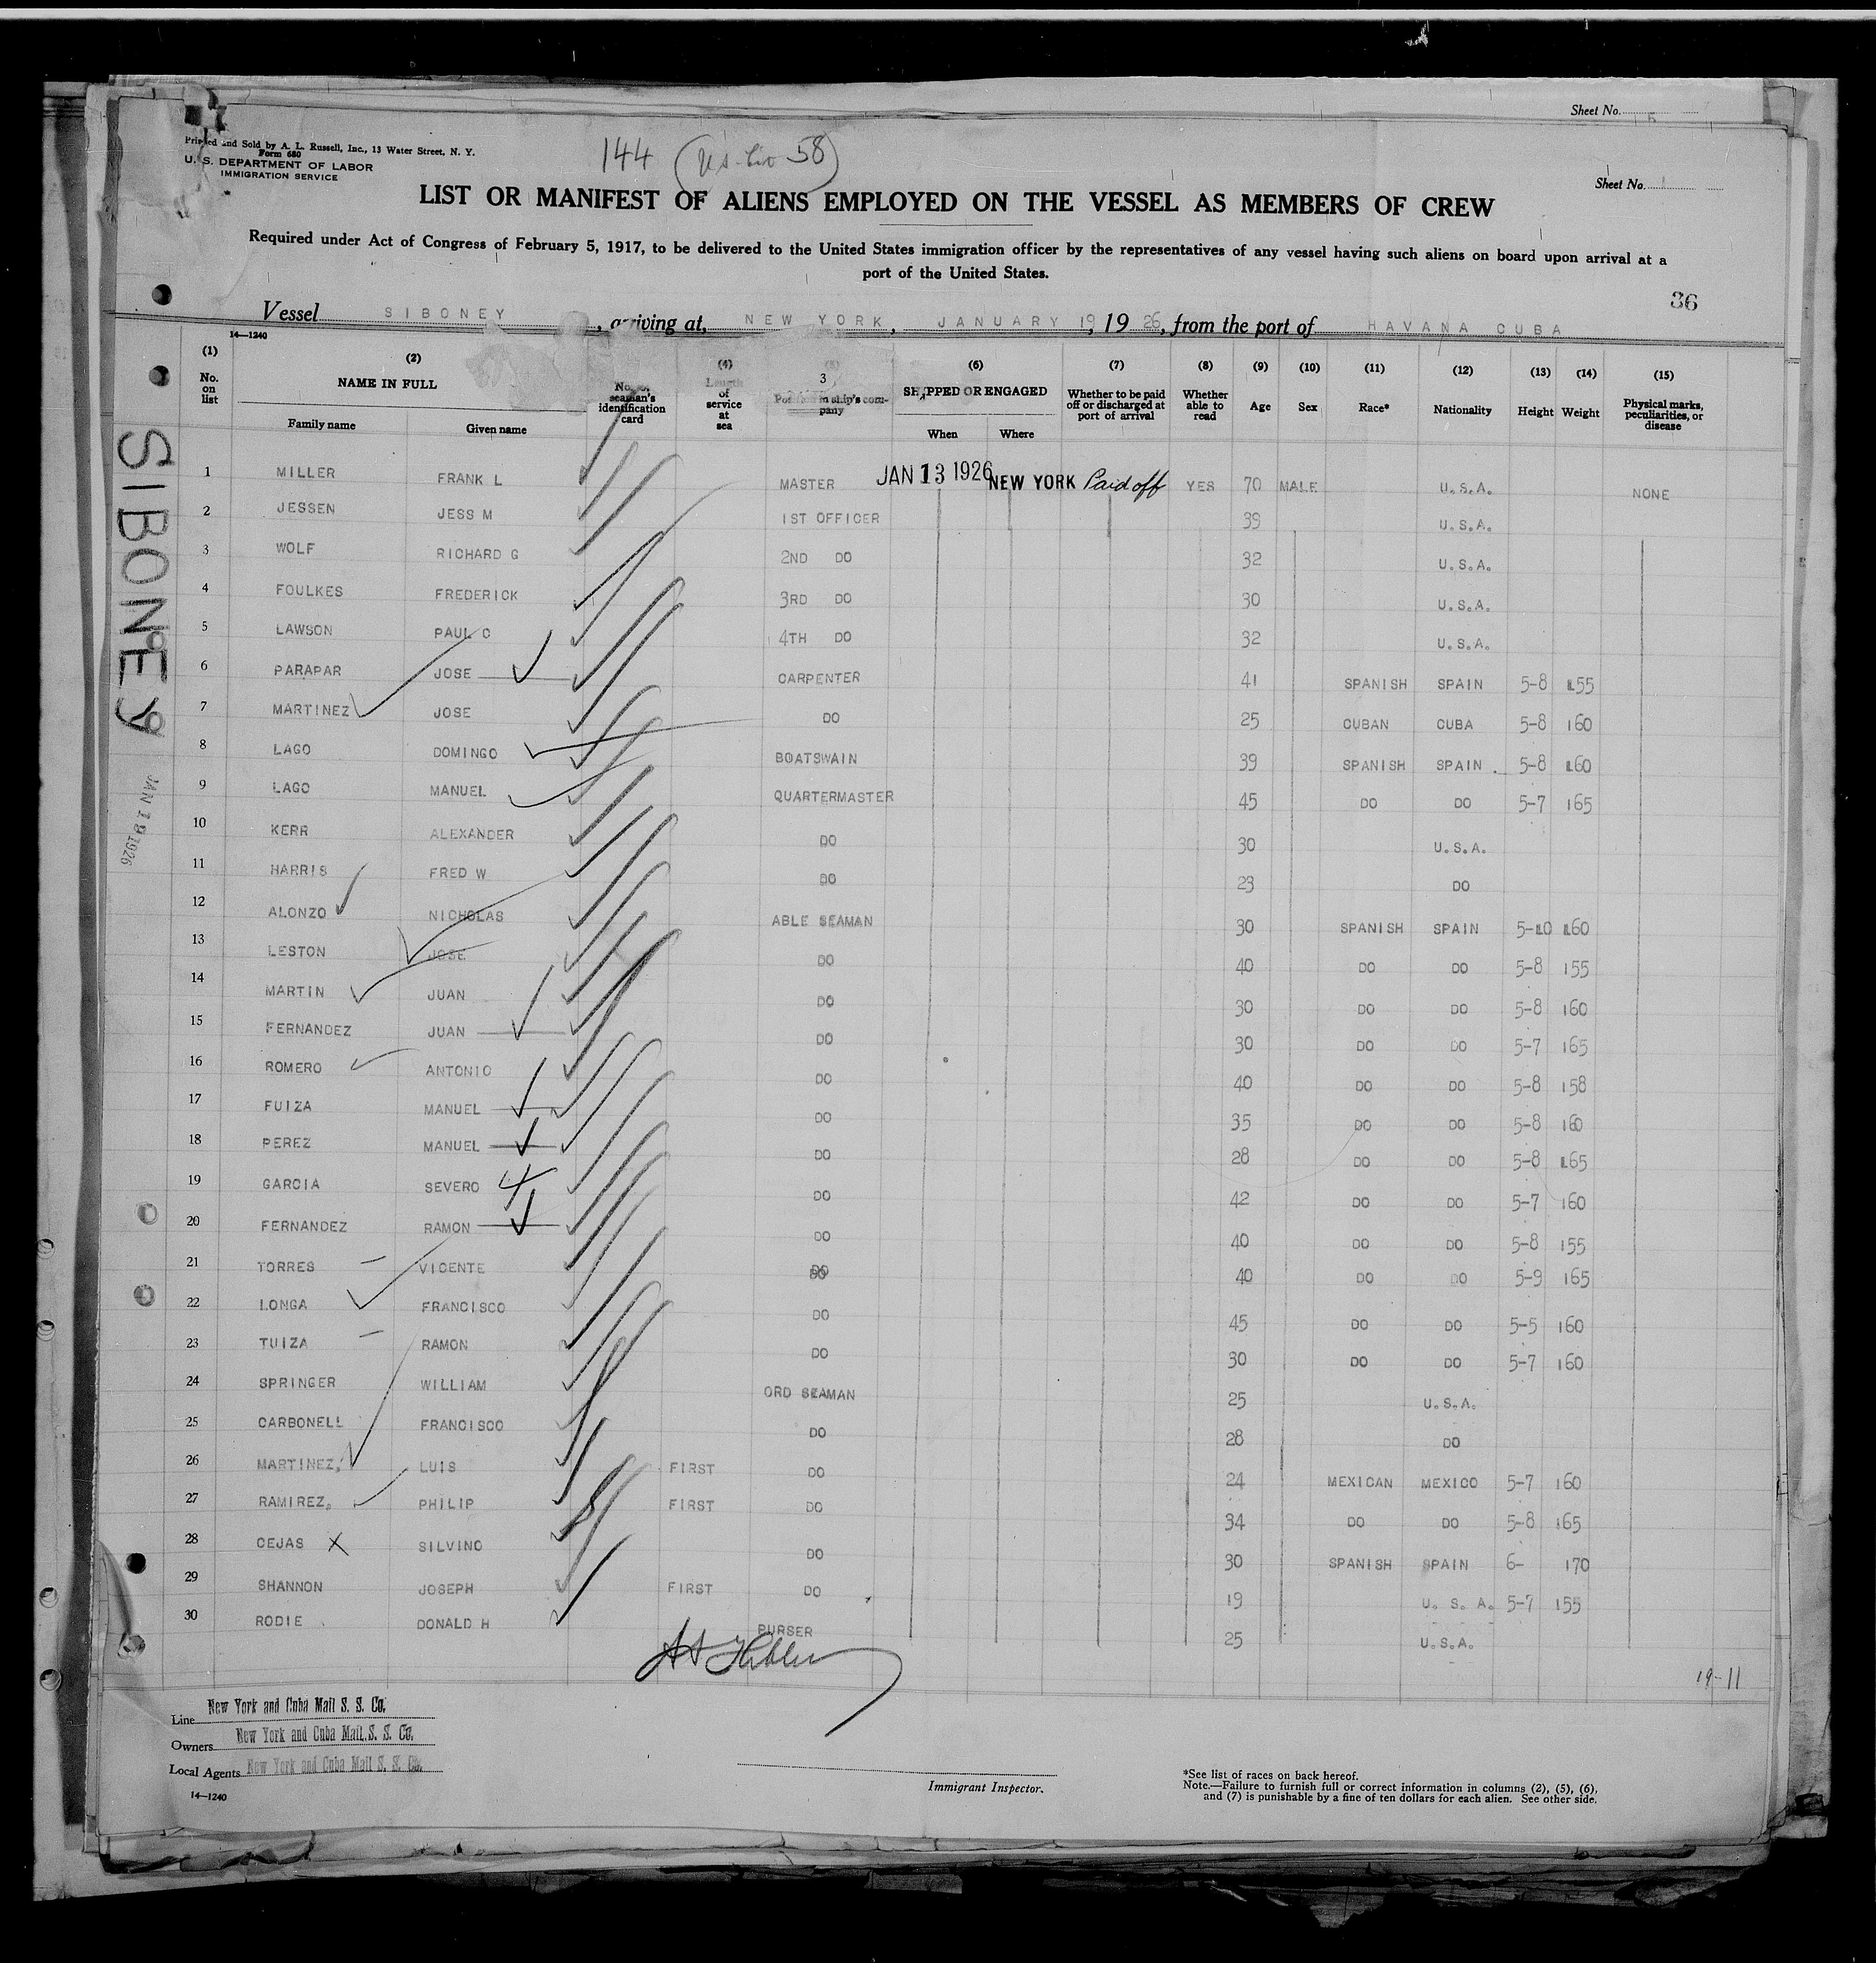 Sheet No. 5
Printed and Sold by A. L. Russell, Inc., 13 Water Street, N. Y.
Form 680
U. S. DEPARTMENT OF LABOR
IMMIGRATION SERVICE
144 58
Sheet No. 1
LIST OR MANIFEST OF ALIENS EMPLOYED ON THE VESSEL AS MEMBERS OF CREW
Required under Act of Congress of February 5, 1917, to be delivered to the United States immigration officer by the representatives of any vessel having such aliens on board upon arrival at a
port of the United States.
36
Vessel SIBONEY, arriving at, NEW YORK, JANUARY 19, 1926, from the port of HAVANA CUBA
14—1240
(1) (2) (4) (5) (6) (7) (8) (9) (10) (11) (12) (13) (14) (15)
No. on list NAME IN FULL Family name Given name No. of seaman's identification card Length of service at sea 3 Position in ship's company SHIPPED OR ENGAGED When Where Whether to be paid off or discharged at port of arrival Whether able to read Age Sex Race* Nationality Height Weight Physical marks, peculiarities, or disease
SIBONEY
JAN 19 1926
1 MILLER FRANK L MASTER JAN 13 1926 NEW YORK Paid off YES 70 MALE U.S.A. NONE
2 JESSEN JESS M 1ST OFFICER 39 U.S.A.
3 WOLF RICHARD G 2ND DO 32 U.S.A.
4 FOULKES FREDERICK 3RD DO 30 U.S.A.
5 LAWSON PAUL C 4TH DO 32 U.S.A.
6 PARAPAR JOSE CARPENTER 41 SPANISH SPAIN 5-8 155
7 MARTINEZ JOSE DO 25 CUBAN CUBA 5-8 160
8 LAGO DOMINGO BOATSWAIN 39 SPANISH SPAIN 5-8 160
9 LAGO MANUEL QUARTERMASTER 45 DO DO 5-7 165
10 KERR ALEXANDER DO 30 U.S.A.
11 HARRIS FRED W DO 23 DO
12 ALONZO NICHOLAS ABLE SEAMAN 30 SPANISH SPAIN 5-10 160
13 LESTON JOSE DO 40 DO DO 5-8 155
14 MARTIN JUAN DO 30 DO DO 5-8 160
15 FERNANDEZ JUAN DO 30 DO DO 5-7 165
16 ROMERO ANTONIO DO 40 DO DO 5-8 158
17 FUIZA MANUEL DO 35 DO DO 5-8 160
18 PEREZ MANUEL DO 28 DO DO 5-8 165
19 GARCIA SEVERO DO 42 DO DO 5-7 160
20 FERNANDEZ RAMON DO 40 DO DO 5-8 155
21 TORRES VICENTE DO 40 DO DO 5-9 165
22 LONGA FRANCISCO DO 45 DO DO 5-5 160
23 TUIZA RAMON DO 30 DO DO 5-7 160
24 SPRINGER WILLIAM ORD SEAMAN 25 U.S.A.
25 CARBONELL FRANCISCO DO 28 DO
26 MARTINEZ, LUIS FIRST DO 24 MEXICAN MEXICO 5-7 160
27 RAMIREZ. PHILIP FIRST DO 34 DO DO 5-8 165
28 CEJAS X SILVINO DO 30 SPANISH SPAIN 6- 170
29 SHANNON JOSEPH FIRST DO 19 U. S. A. 5-7 155
30 RODIE DONALD H PURSER 25 U.S.A.
19-11
Line New York and Cuba Mail S. S. Co.
Owners New York and Cuba Mail S. S. Co.
Local Agents New York and Cuba Mail S. S. Co.
14—1240
Immigrant Inspector.
*See list of races on back hereof.
Note.—Failure to furnish full or correct information in columns (2), (5), (6),
and (7) is punishable by a fine of ten dollars for each alien. See other side.